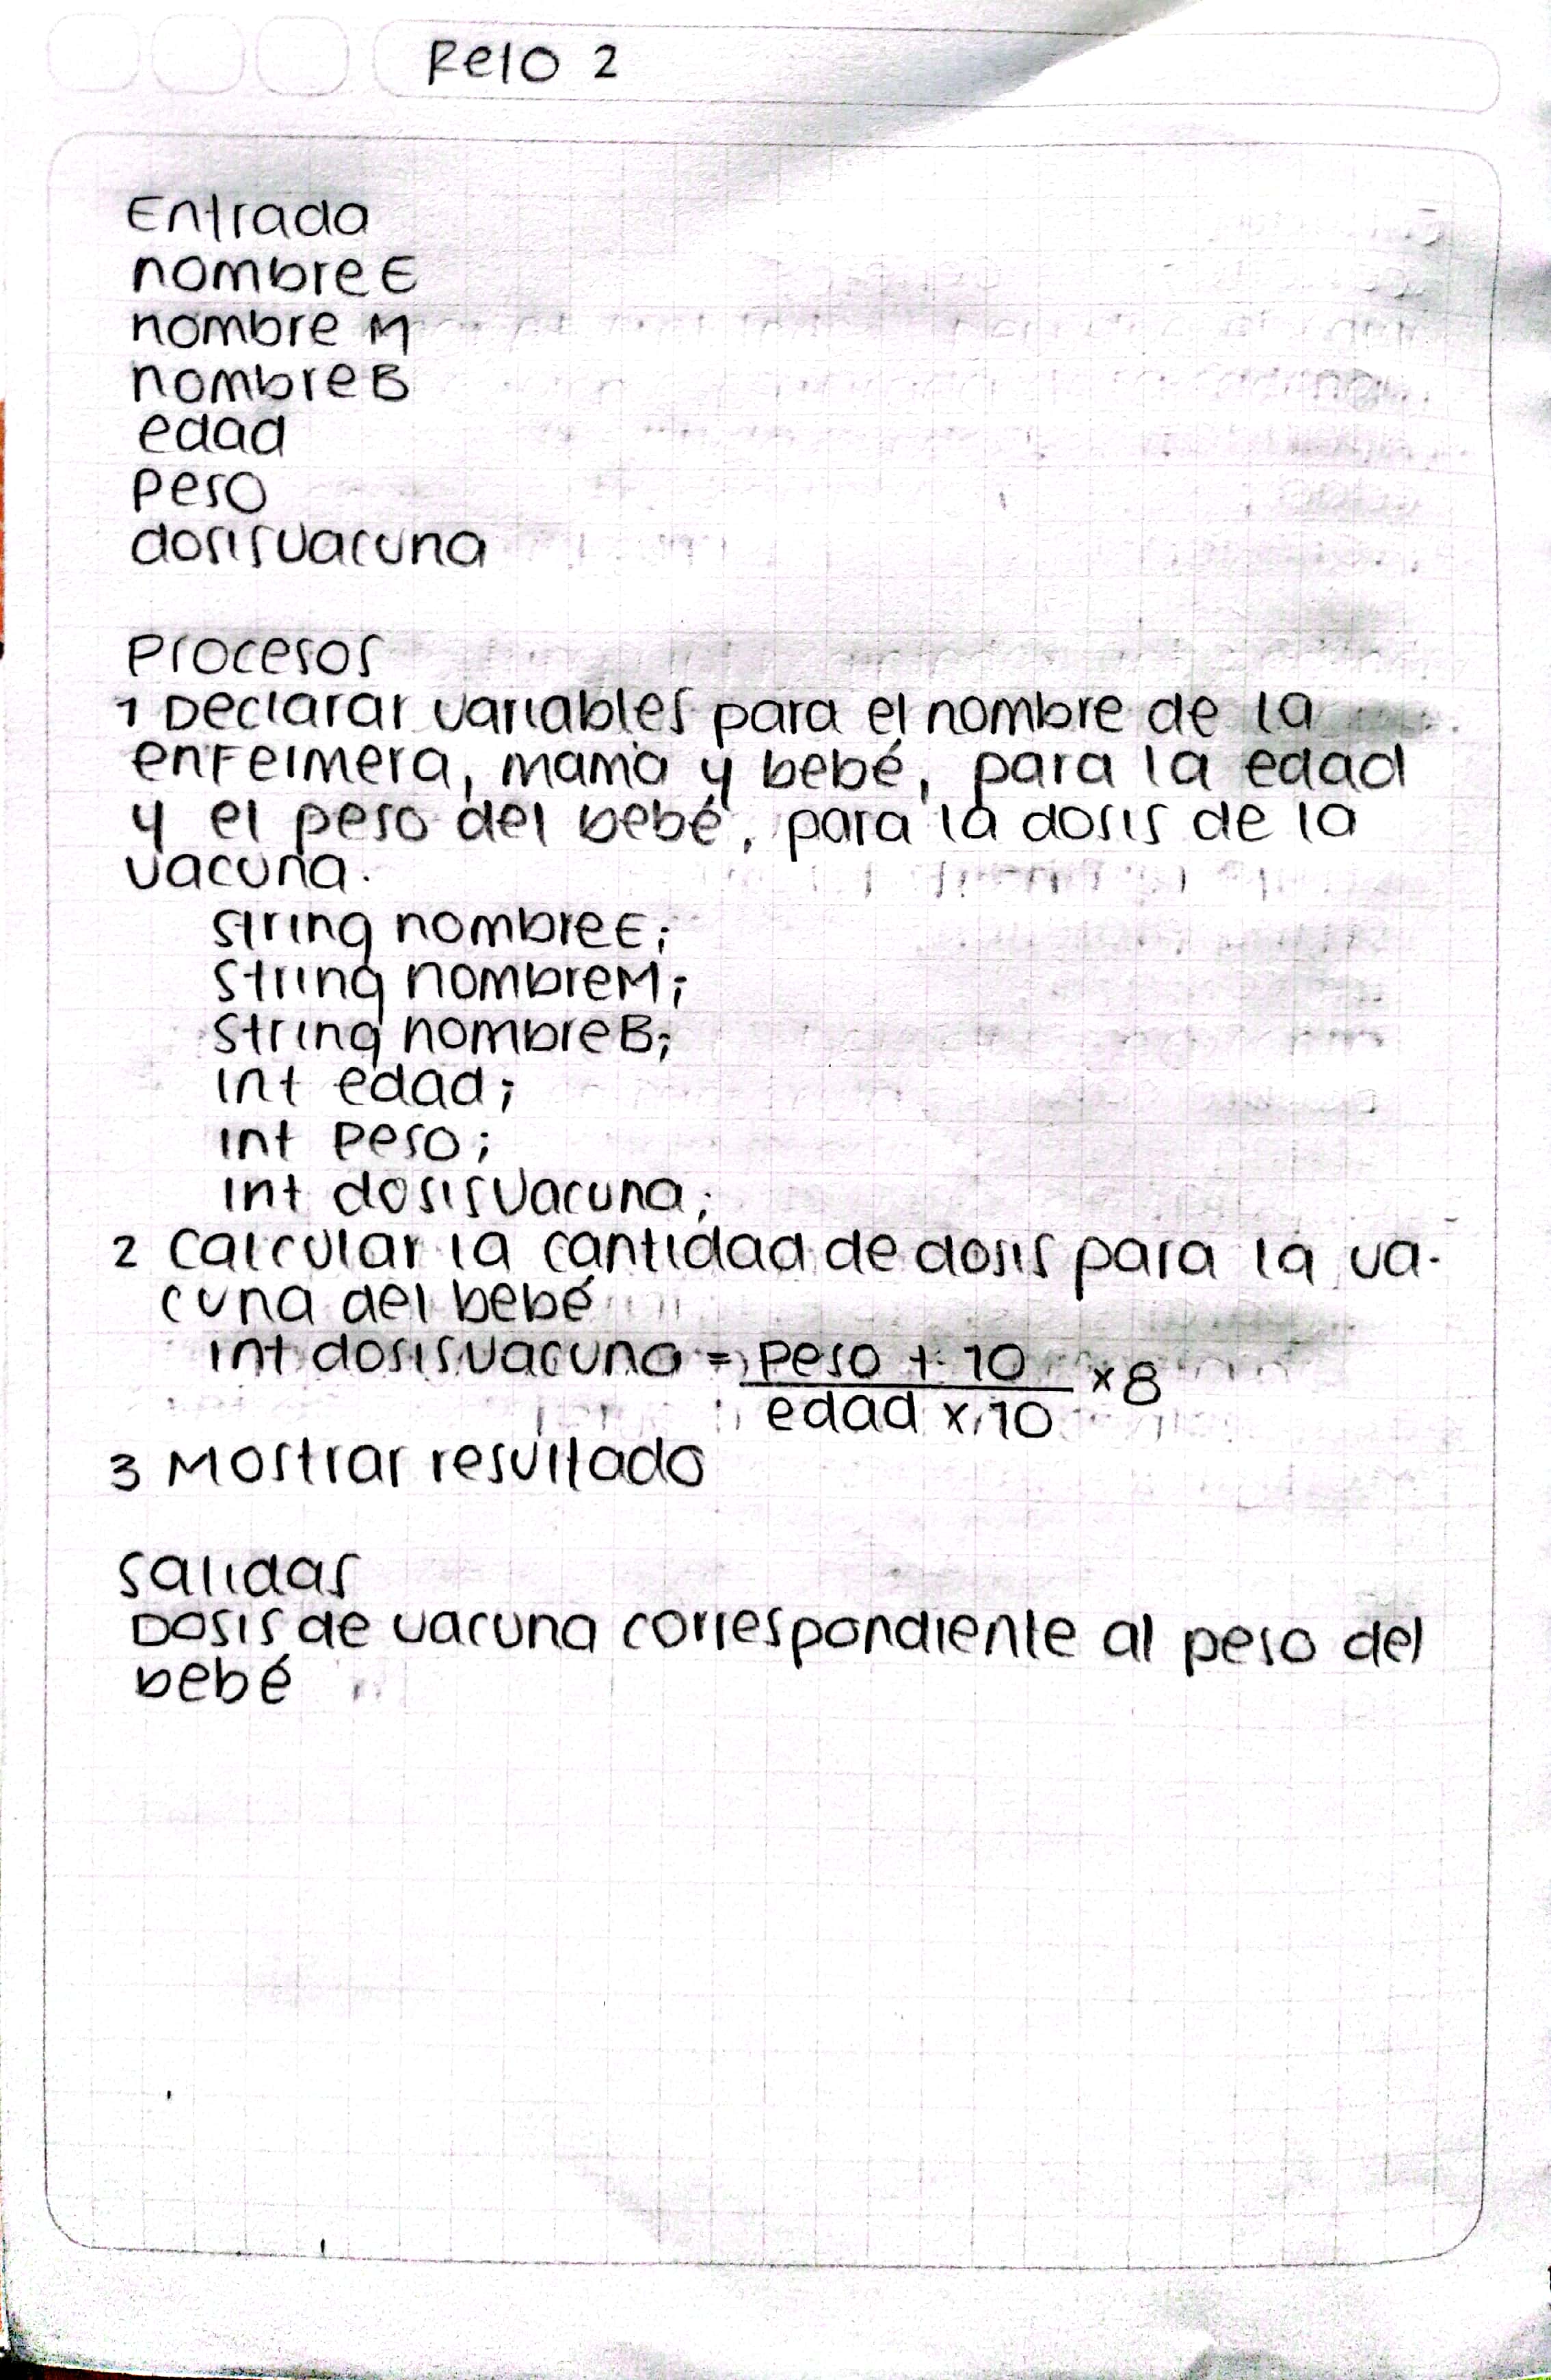 Reto 2
Entrada
nombreE
nombre M
nombreB
edad
peso
dosisvacuna
Procesos
1 Declarar variables para el nombre de la
enfermera, mamá y bebé, para la edad
y el peso del bebé, para la dosis de la
vacuna.
string nombreE;
string nombreM;
string nombreB;
int edad;
int peso;
int dosisvacuna;
2 Calcular la cantidad de dosis para la va-
cuna del bebé
int dosisvacuna = peso + 10 × 8
edad × 10
3 Mostrar resultado
Salidas
Dosis de vacuna correspondiente al peso del
bebé